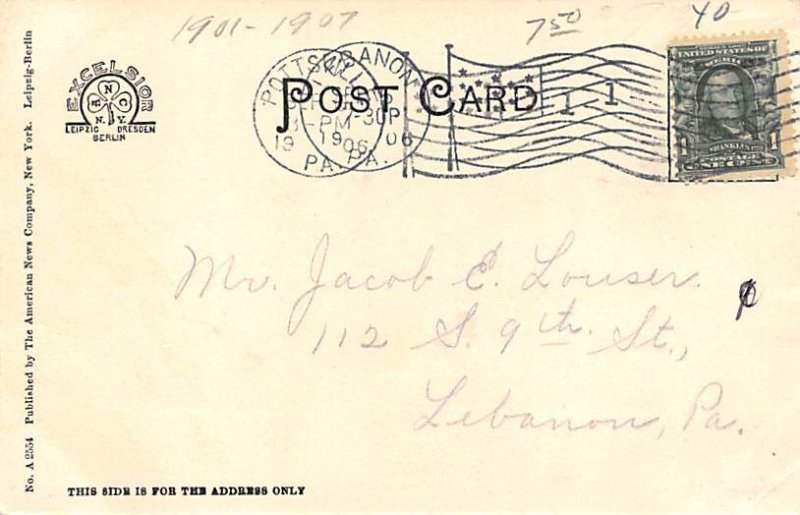 1901-1907
7 50
40
EXCELSIOR
A N C
N.Y.
LEIPZIG DRESDEN
BERLIN
POST CARD
1 1
190
PA. PA.
UNITED STATES
FRANKLIN
Mr. Jacob E. Louser.
112 S. 9th. St.,
Lebanon, Pa.
¢
No. A 2554 Published by The American News Company, New York. Leipzig-Berlin
THIS SIDE IS FOR THE ADDRESS ONLY